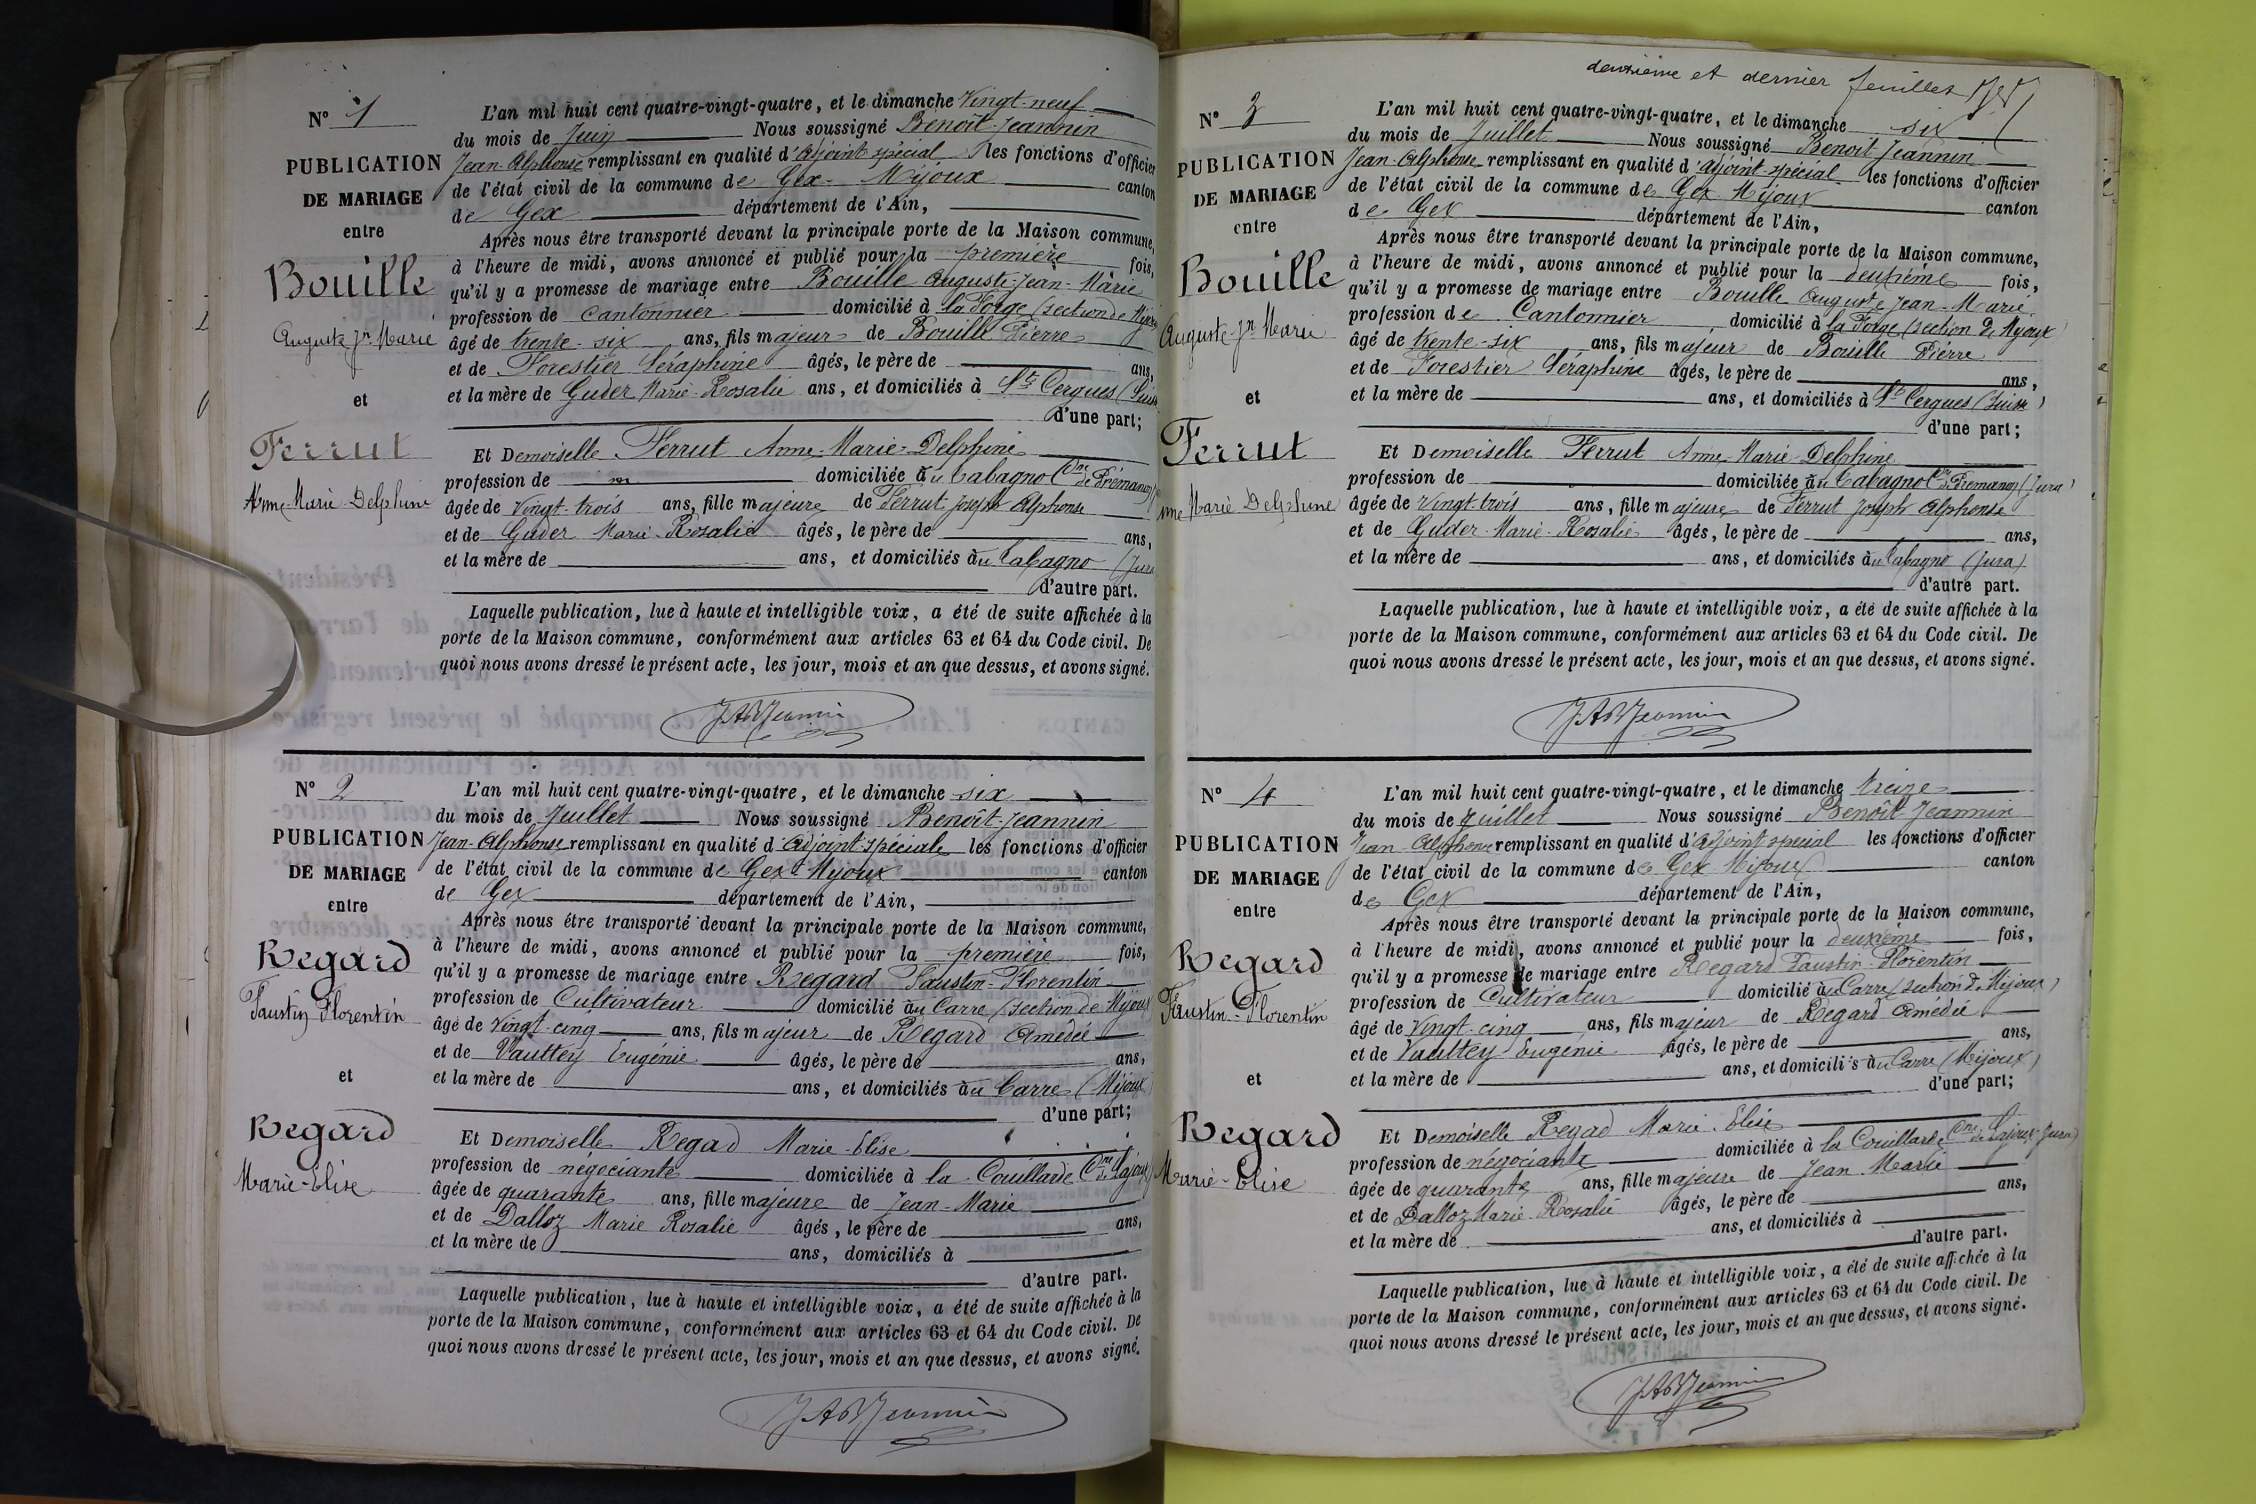 N° 1
PUBLICATION
DE MARIAGE
entre
Bouille
Auguste Jn Marie
et
Ferrut
Anne-Marie Delphine
L'an mil huit cent quatre-vingt-quatre, et le dimanche Vingt-neuf
du mois de Juin Nous soussigné Benoît-Jeannin
Jean-Alphonse remplissant en qualité d'adjoint spécial les fonctions d'officier
de l'état civil de la commune de Gex-Mijoux canton
de Gex département de l'Ain,
Après nous être transporté devant la principale porte de la Maison commune,
à l'heure de midi, avons annoncé et publié pour la première fois,
qu'il y a promesse de mariage entre Bouille Auguste-Jean-Marie
profession de Cantonnier domicilié à la Forge (section de Mijoux
âgé de trente-six ans, fils majeur de Bouille Pierre
et de Forestier Séraphine âgés, le père de ans,
et la mère de Guder Marie-Rosalie ans, et domiciliés à St Cergues (Suisse
d'une part;
Et Demoiselle Ferrut Anne-Marie-Delphine
profession de domiciliée au Tabagno Cne de Prémanon
âgée de Vingt-trois ans, fille majeure de Ferrut Joseph Alphonse
et de Guder Marie-Rosalie âgés, le père de ans,
et la mère de ans, et domiciliés au Tabagno (Jura
d'autre part.
Laquelle publication, lue à haute et intelligible voix, a été de suite affichée à la
porte de la Maison commune, conformément aux articles 63 et 64 du Code civil. De
quoi nous avons dressé le présent acte, les jour, mois et an que dessus, et avons signé.
JABJeannin
N° 2
PUBLICATION
DE MARIAGE
entre
Regard
Faustin Florentin
et
Regard
Marie-Elise
L'an mil huit cent quatre-vingt-quatre, et le dimanche six
du mois de Juillet Nous soussigné Benoît-Jeannin
Jean-Alphonse remplissant en qualité d'adjoint-spéciale les fonctions d'officier
de l'état civil de la commune de Gex-Mijoux canton
de Gex département de l'Ain,
Après nous être transporté devant la principale porte de la Maison commune,
à l'heure de midi, avons annoncé et publié pour la première fois,
qu'il y a promesse de mariage entre Regard Faustin-Florentin
profession de Cultivateur domicilié au Carre (section de Mijoux
âgé de Vingt-cinq ans, fils majeur de Regard Amédée
et de Vauttey Eugénie âgés, le père de ans,
et la mère de ans, et domiciliés au Carre (Mijoux)
d'une part;
Et Demoiselle Regad Marie-Elise
profession de négociante domiciliée à la Couillarde Cne de Lajoux
âgée de quarante ans, fille majeure de Jean-Marie
et de Dalloz Marie Rosalie âgés, le père de ans,
et la mère de ans, domiciliés à
d'autre part.
Laquelle publication, lue à haute et intelligible voix, a été de suite affichée à la
porte de la Maison commune, conformément aux articles 63 et 64 du Code civil. De
quoi nous avons dressé le présent acte, les jour, mois et an que dessus, et avons signé.
JABJeannin
deuxième et dernier feuillet
N° 3
PUBLICATION
DE MARIAGE
entre
Bouille
Auguste Jn Marie
et
Ferrut
nne Marie Delphine
L'an mil huit cent quatre-vingt-quatre, et le dimanche six
du mois de Juillet Nous soussigné Benoit Jeannin
Jean-Alphonse remplissant en qualité d'adjoint-spécial les fonctions d'officier
de l'état civil de la commune de Gex Mijoux canton
de Gex département de l'Ain,
Après nous être transporté devant la principale porte de la Maison commune,
à l'heure de midi, avons annoncé et publié pour la deuxième fois,
qu'il y a promesse de mariage entre Bouille Auguste Jean-Marie
profession de Cantonnier, domicilié à la Forge (section de Mijoux)
âgé de trente-six ans, fils majeur de Bouille Pierre
et de Forestier Séraphine âgés, le père de ans,
et la mère de ans, et domiciliés à St Cergues (Suisse)
d'une part;
Et Demoiselle Ferrut Anne-Marie-Delphine
profession de domiciliée au Tabagno Cne de Premanon (Jura)
âgée de Vingt-trois ans, fille majeure de Ferrut Joseph Alphonse
et de Guder Marie-Rosalie âgés, le père de ans,
et la mère de ans, et domiciliés au Tabagno (Jura)
d'autre part.
Laquelle publication, lue à haute et intelligible voix, a été de suite affichée à la
porte de la Maison commune, conformément aux articles 63 et 64 du Code civil. De
quoi nous avons dressé le présent acte, les jour, mois et an que dessus, et avons signé.
JABJeannin
N° 4
PUBLICATION
DE MARIAGE
entre
Regard
Faustin-Florentin
et
Regard
Marie-Elise
L'an mil huit cent quatre-vingt-quatre, et le dimanche treize
du mois de Juillet Nous soussigné Benoît Jeannin
Jean-Alphonse remplissant en qualité d'adjoint spécial les fonctions d'officier
de l'état civil de la commune de Gex Mijoux canton
de Gex département de l'Ain,
Après nous être transporté devant la principale porte de la Maison commune,
à l'heure de midi, avons annoncé et publié pour la deuxième fois,
qu'il y a promesse de mariage entre Regard Faustin-Florentin
profession de Cultivateur domicilié au Carre (section de Mijoux)
âgé de Vingt-cinq ans, fils majeur de Regard Amédée
et de Vauttey Eugénie âgés, le père de ans,
et la mère de ans, et domiciliés au Carre (Mijoux)
d'une part;
Et Demoiselle Regad Marie-Elise
profession de négociante domiciliée à la Couillarde Cne de Lajoux (Jura)
âgée de quarante ans, fille majeure de Jean Marie
et de Dalloz Marie-Rosalie âgés, le père de ans,
et la mère de ans, et domiciliés à
d'autre part.
Laquelle publication, lue à haute et intelligible voix, a été de suite affichée à la
porte de la Maison commune, conformément aux articles 63 et 64 du Code civil. De
quoi nous avons dressé le présent acte, les jour, mois et an que dessus, et avons signé.
JABJeannin